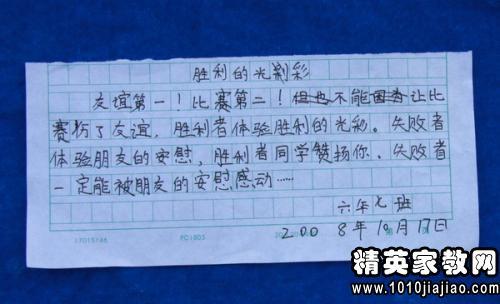 胜利的光彩
友谊第一！比赛第二！但也不能因为让比
赛伤了友谊，胜利者体验胜利的光彩。失败者
体验朋友的安慰，胜利者同学赞扬你、失败者
一定能被朋友的安慰感动……
六年七班
2008年10月17日
17015746
PC1805
精英家教网
www.1010jiajiao.com